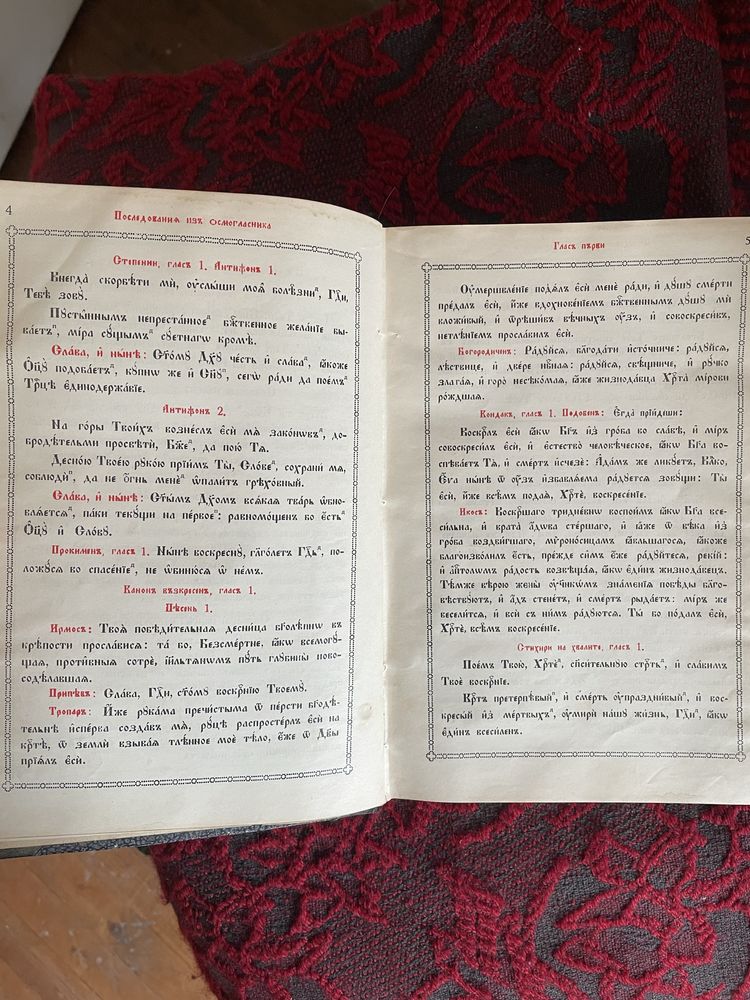 4
Послѣдованиѧ изъ Осмогласника
Степенни, гласъ 1. Антифонъ 1.
Внегда̀ скорбѣ́ти мѝ, оу҆слы́ши моѧ̑ болѣ̑зни, Гдⷭ҇и,
Тебѣ̀ зовꙋ̀.
Пꙋсты̑ннымъ непреста́нное бж҃ткенное жела́нїе бы-
ва́етъ, мі́ра сꙋ́щымъ сꙋ́етнагѡ кромѣ̀.
Сла́ва, и҆ ны́нѣ: Ст҃о́мꙋ Дх҃ꙋ че́сть и҆ сла́ва, ꙗ҆́коже
Ѻ҆ц҃ꙋ̀ подоба́етъ, кꙋ́пнѡ же и҆ Сн҃ꙋ, сегѡ̀ ра́ди да пое́мъ
Трⷪ҇цѣ є҆динодержа́вїе.
Антифонъ 2.
На го́ры Твои́хъ возне́слъ є҆сѝ мѧ̀ зако́нѡвъ, до-
бродѣ́тельми просвѣтѝ, Бж҃е, да пою́ Тѧ.
Десно́ю Твое́ю рꙋко́ю прїи́мъ Ты̀, Сло́ве, сохранѝ мѧ̀,
соблюдѝ, да не ѻ҆́гнь менѐ ѡ҆пали́тъ грѣхо́вный.
Сла́ва, и҆ ны́нѣ: Ст҃ы́мъ Дх҃омъ всѧ́каѧ тва́рь ѡ҆бно-
влѧ́етсѧ, па́ки текꙋ́щи на пе́рвое: равномо́щенъ бо є҆́сть
Ѻ҆ц҃ꙋ̀ и҆ Сло́вꙋ.
Прокименъ, гласъ 1. Ны́нѣ воскреснꙋ̀, гл҃го́летъ Гдⷭ҇ь, по-
ложꙋ́сѧ во спасе́нїе, не ѡ҆бинюсѧ ѡ҆ не́мъ.
Канонъ възкресенъ, гласъ 1.
Пѣсень 1.
Ирмосъ: Твоѧ̀ побѣди́тельнаѧ десни́ца бг҃олѣ́пнѡ въ
крѣ́пости просла́висѧ: та́ бо, Безсме́ртне, ꙗ҆́кѡ всемогꙋ́-
щаѧ, проти́вныѧ сотрѐ, і҆и҃льтѧнѡмъ пꙋ́ть глꙋбины̀ ново-
содѣ́лавшаѧ.
Припѣвъ: Слава, Гдⷭ҇и, ст҃о́мꙋ воскрⷭ҇нїю Твоемꙋ̀.
Тропаръ: И҆́же рꙋка́ма пречи́стыма ѿ пе́рсти бг҃одѣ́-
тельнѣ и҆спе́рва созда́въ мѧ̀, рꙋ́цѣ распросте́рлъ є҆сѝ на
крⷭ҇тѣ̀, ѿ землѝ взыва́ѧ тлѣ́нное моѐ тѣ́ло, є҆́же ѿ Дв҃ы
прїѧ́лъ є҆сѝ.
Гласъ първи
5
Оу҆мерщвле́нїе под̾ѧ́лъ є҆сѝ менѐ ра́ди, и҆ дꙋ́шꙋ сме́рти
пре́далъ є҆сѝ, и҆́же вдохнове́нїемъ бж҃твеннымъ дꙋ́шꙋ мѝ
вложи́вый, и҆ ѿрѣши́въ вѣ́чныхъ оу҆́зъ, и҆ совоскреси́въ,
нетлѣ́нїемъ просла́вилъ є҆сѝ.
Богородиченъ: Ра́дꙋйсѧ, благода́ти и҆сто́чниче: ра́дꙋйсѧ,
лѣ́ствице, и҆ две́ре нб҃наѧ: ра́дꙋйсѧ, свѣ́щниче, и҆ рꙋ́чко
злата́ѧ, и҆ горо̀ несѣко́маѧ, ꙗ҆́же жизнода́вца Хрⷭ҇та̀ мі́рови
ро́ждшаѧ.
Кондакъ, гласъ 1. Подобенъ: Є҆гда̀ прїи́деши:
Воскрⷭ҇лъ є҆сѝ ꙗ҆́кѡ Бг҃ъ и҆з гро́ба во сла́вѣ, и҆ мі́ръ
совоскреси́лъ є҆сѝ, и҆ є҆стество̀ человѣ́ческое, ꙗ҆́кѡ Бг҃а во-
спѣва́етъ Тѧ, и҆ сме́рть и҆счезѐ: А҆да́мъ же лику́етъ, Влⷣко,
Є҆́ѵа ны́нѣ ѿ оу҆́зъ и҆збавлѧ́ема ра́дꙋетсѧ зовꙋ́щи: Ты̀
є҆сѝ, и҆́же всѣ̑мъ подаѧ̀, Хрⷭ҇тѐ, воскресе́нїе.
Икосъ: Воскрⷭ҇шаго тридне́внѡ воспои́мъ ꙗ҆́кѡ Бг҃а все-
си́льна, и҆ врата̀ а҆́дѡва сте́ршаго, и҆ ꙗ҆̀же ѿ вѣ́ка и҆з
гро́ба воздви́гшаго, мѷроно́сицамъ ꙗ҆́вльшагосѧ, ꙗ҆́коже
благоизво́лилъ є҆́сть, пре́жде си́мъ є҆́же ра́дꙋйтесѧ, реки́й:
и҆ а҆пⷭ҇толѡмъ ра́дость возвѣща́ѧ, ꙗ҆́кѡ є҆ди́нъ жизнода́вецъ.
Тѣ́мже вѣ́рою жены̀ оу҆ченикѡ́мъ зна́менїѧ побѣ́ды бл҃го-
вѣствꙋ́ютъ, и҆ а҆́дъ стене́тъ, и҆ сме́рть рыда́етъ: мі́ръ же
весели́тсѧ, и҆ всѝ съ ни́мъ ра́дꙋютсѧ. Ты́ бо по́далъ є҆сѝ,
Хрⷭ҇тѐ, всѣ̑мъ воскресе́нїе.
Стихири на хвалите, гласъ 1.
Пое́мъ Твою̀, Хрⷭ҇тѐ, сп҃си́тельнꙋю стрⷭ҇ть, и҆ сла́вимъ
Твоѐ воскрⷭ҇нїе.
Крⷭ҇тъ претерпѣ́вый, и҆ сме́рть оу҆праздни́вый, и҆ вос-
кресы́й и҆з ме́ртвыхъ, оу҆мирѝ на́шꙋ жи́знь, Гдⷭ҇и, ꙗ҆́кѡ
є҆ди́нъ всеси́ленъ.